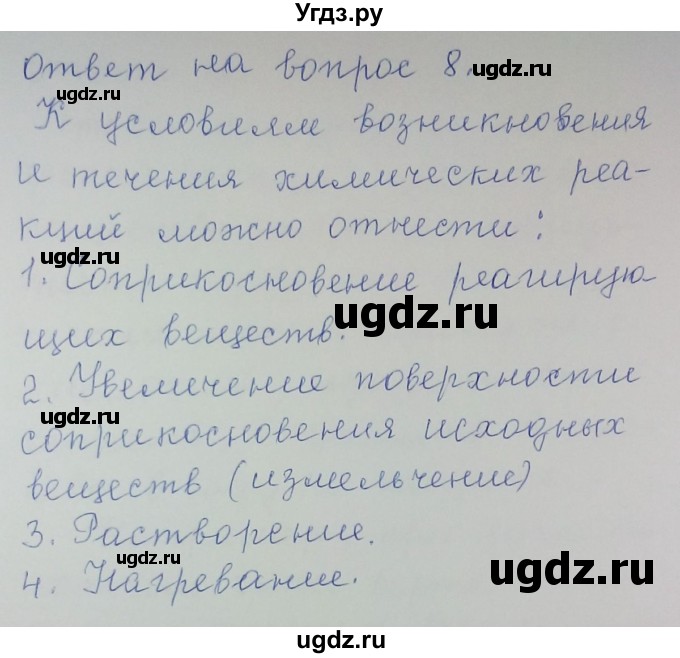 Угдз.ру
Ответ на вопрос 8.
ugdz.ru
ugdz.ru
К условиям возникновения
и течения химических реа-
кций можно отнести:
ugdz.ru
1. Соприкосновение реагирую-
ugdz.ru
щих веществ.
2. Увеличение поверхности
ugdz.ru
соприкосновения исходных
веществ (измельчение)
3. Растворение.
ugdz.ru
ugdz.ru
4. Нагревание.
ugdz.ru